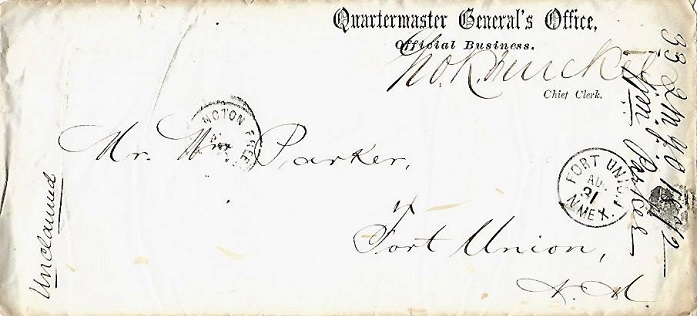 Quartermaster General's Office,
Official Business.
Chief Clerk.
NGTON FREE
Mr. Wm Parker,
Fort Union,
N. M.
FORT UNION
AU
31
N MEX.
Unclaimed
Wm Parker